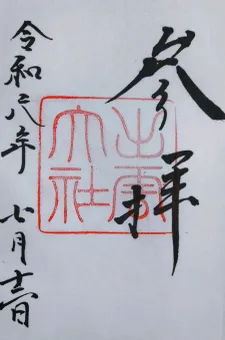 参拝
出雲大社
令和六年 七月十三日